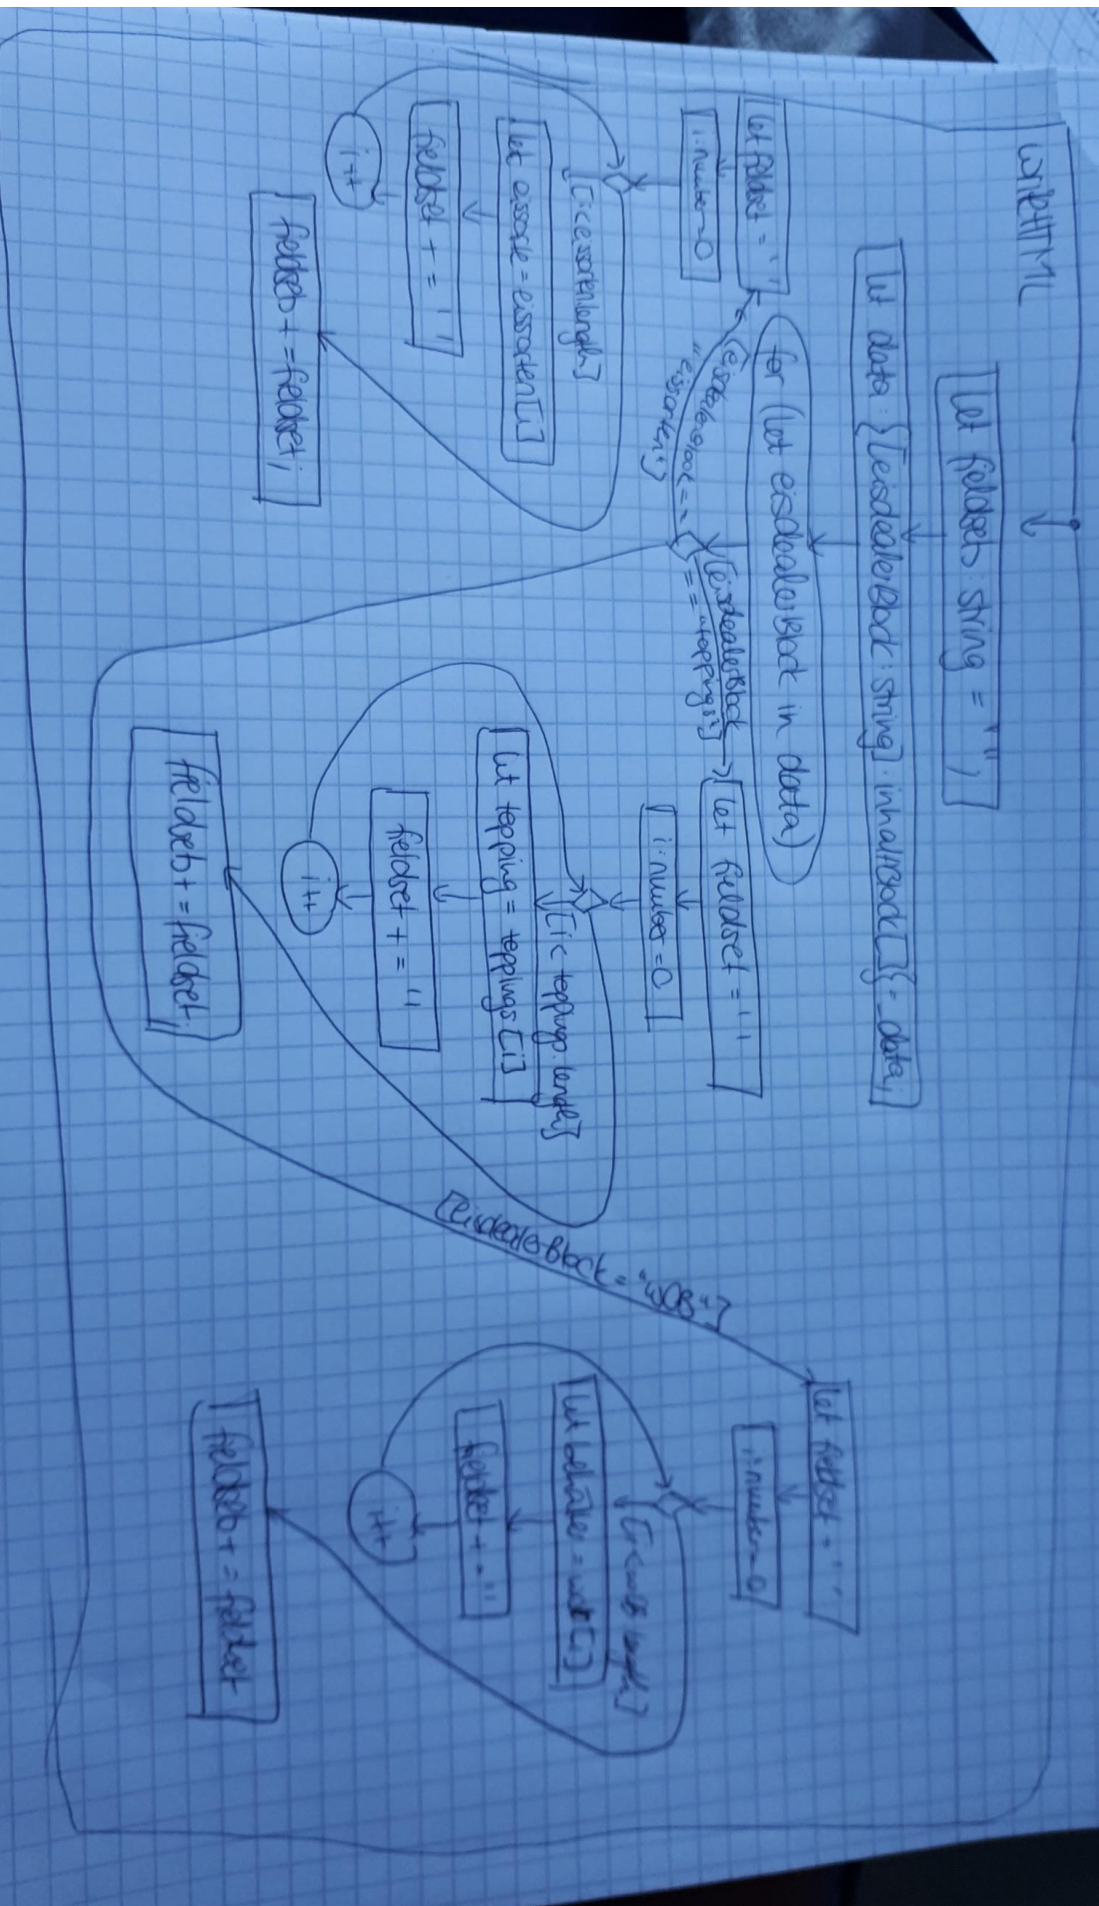 writeHTML
let fieldsets: string = "";
let data: {[eisdealerBlock: string]: inhaltBlock[]} = _data;
for (let eisdealerBlock in data)
[eisdealerBlock ==
"eissorten"]
let fieldset = ' '
i: number = 0
[i < eissorten.length]
let eissorte = eissorten[i]
fieldset + = ' '
i++
fieldsets + = fieldset;
[eisdealerBlock
== "toppings"]
let fieldset = ' '
i: number = 0
[i < toppings.length]
let topping = toppings[i]
fieldset + = ''
i++
fieldsets + = fieldset;
[eisdealerBlock = "WOB"]
let fieldset = ' '
i: number = 0
[i < wob.length]
let behälter = wob[i]
fieldset + = ''
i++
fieldsets + = fieldset